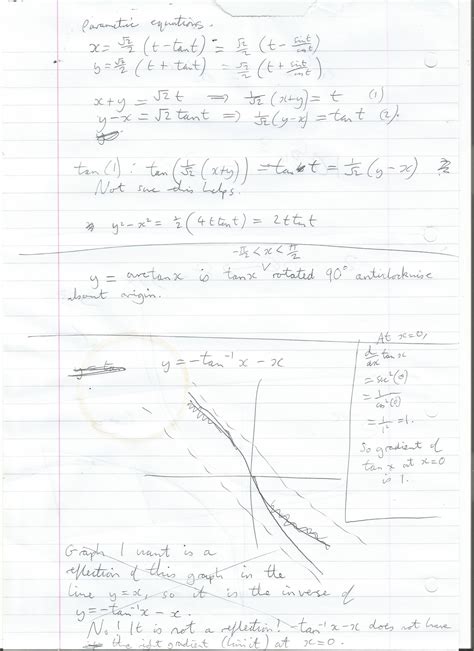 Parametric equations.
x = √2/2 (t - tan t) = √2/2 (t - sin t/cos t)
y = √2/2 (t + tan t) = √2/2 (t + sin t/cos t)
x + y = √2 t ⇒ 1/√2 (x+y) = t (1)
y - x = √2 tan t ⇒ 1/√2 (y-x) = tan t (2).
tan (1) : tan (1/√2 (x+y)) = tan t = 1/√2 (y - x)
Not sure this helps.
y² - x² = ½ (4 t tan t) = 2 t tan t
-π/2 < x < π/2
y = arctan x is tan x rotated 90° anticlockwise
about origin.
y = -tan⁻¹ x - x
At x=0,
d/dx tan x
= sec²(0)
= 1/cos²(0)
= 1/1² = 1.
So gradient of
tan x at x=0
is 1.
Graph I want is a
reflection of this graph in the
line y=x, so it is the inverse of
y = -tan⁻¹ x - x.
No! It is not a reflection! -tan⁻¹ x - x does not have
the gradient (limit) at x = 0.